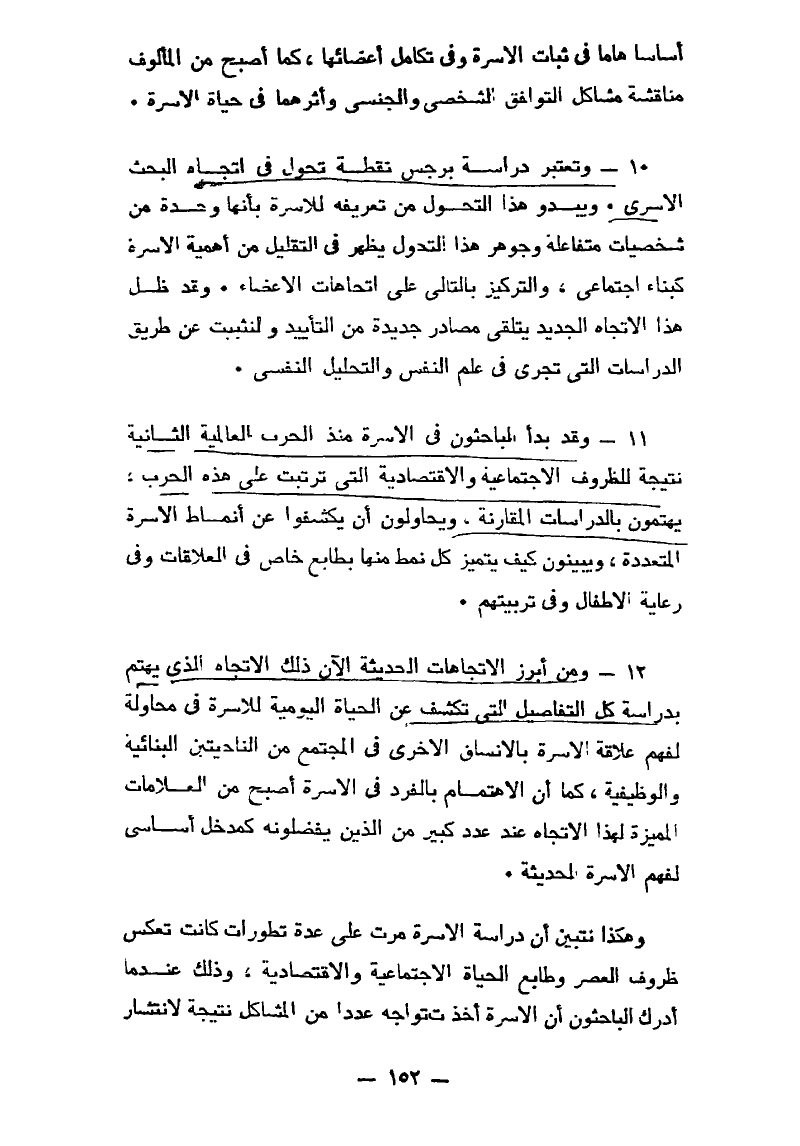 أساسا هاما فى ثبات الاسرة وفى تكامل أعضائها ، كما أصبح من المألوف
مناقشة مشاكل التوافق الشخصى والجنسى وأثرهما فى حياة الاسرة •
١٠ — وتعتبر دراسة برجس نقطة تحول فى اتجاه البحث
الاسرى • ويبدو هذا التحول من تعريفه للاسرة بأنها وحدة من
شخصيات متفاعلة وجوهر هذا التحول يظهر فى التقليل من أهمية الاسرة
كبناء اجتماعى ، والتركيز بالتالى على اتجاهات الاعضاء • وقد ظل
هذا الاتجاه الجديد يتلقى مصادر جديدة من التأييد و لنثبيت عن طريق
الدراسات التى تجرى فى علم النفس والتحليل النفسى •
١١ — وقد بدأ الباحثون فى الاسرة منذ الحرب العالمية الثانية
نتيجة للظروف الاجتماعية والاقتصادية التى ترتبت على هذه الحرب ،
يهتمون بالدراسات المقارنة . ويحاولون أن يكشفوا عن أنماط الاسرة
المتعددة ، ويبينون كيف يتميز كل نمط منها بطابع خاص فى العلاقات وفى
رعاية الاطفال وفى تربيتهم •
١٢ — ومن أبرز الاتجاهات الحديثة الآن ذلك الاتجاه الذي يهتم
بدراسة كل التفاصيل التى تكشف عن الحياة اليومية للاسرة فى محاولة
لفهم علاقة الاسرة بالانساق الاخرى فى المجتمع من الناحيتين البنائية
والوظيفية ، كما أن الاهتمام بالفرد فى الاسرة أصبح من العلامات
المميزة لهذا الاتجاه عند عدد كبير من الذين يفضلونه كمدخل أساسى
لفهم الاسرة الحديثة •
وهكذا نتبين أن دراسة الاسرة مرت على عدة تطورات كانت تعكس
ظروف العصر وطابع الحياة الاجتماعية والاقتصادية ، وذلك عندما
أدرك الباحثون أن الاسرة أخذ تتواجه عددا من المشاكل نتيجة لانتشار
— ١٥٢ —